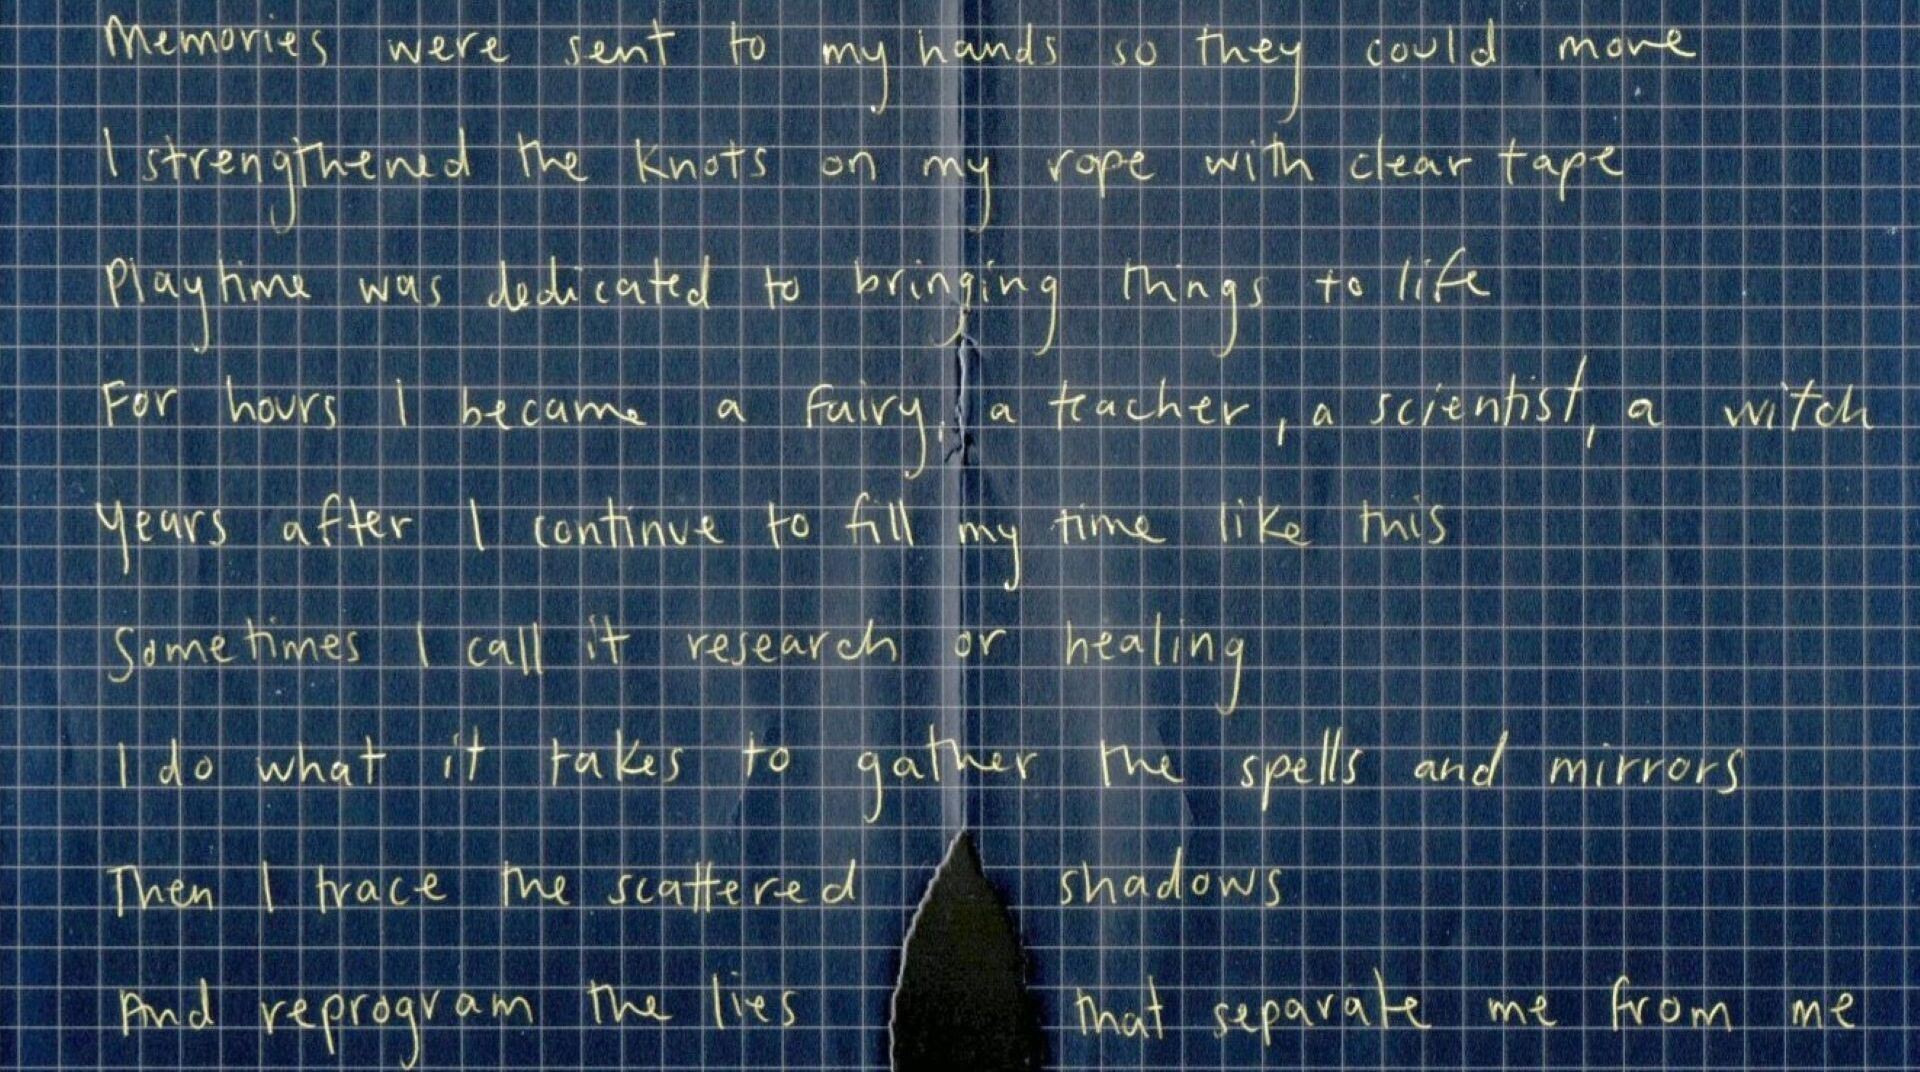 Memories were sent to my hands so they could move
I strengthened the knots on my rope with clear tape
Playtime was dedicated to bringing things to life
For hours I became a fairy, a teacher, a scientist, a witch
Years after I continue to fill my time like this
Sometimes I call it research or healing
I do what it takes to gather the spells and mirrors
Then I trace the scattered shadows
And reprogram the lies that separate me from me